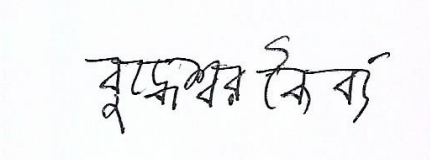 বুদ্ধেশ্বর কৈবর্ত